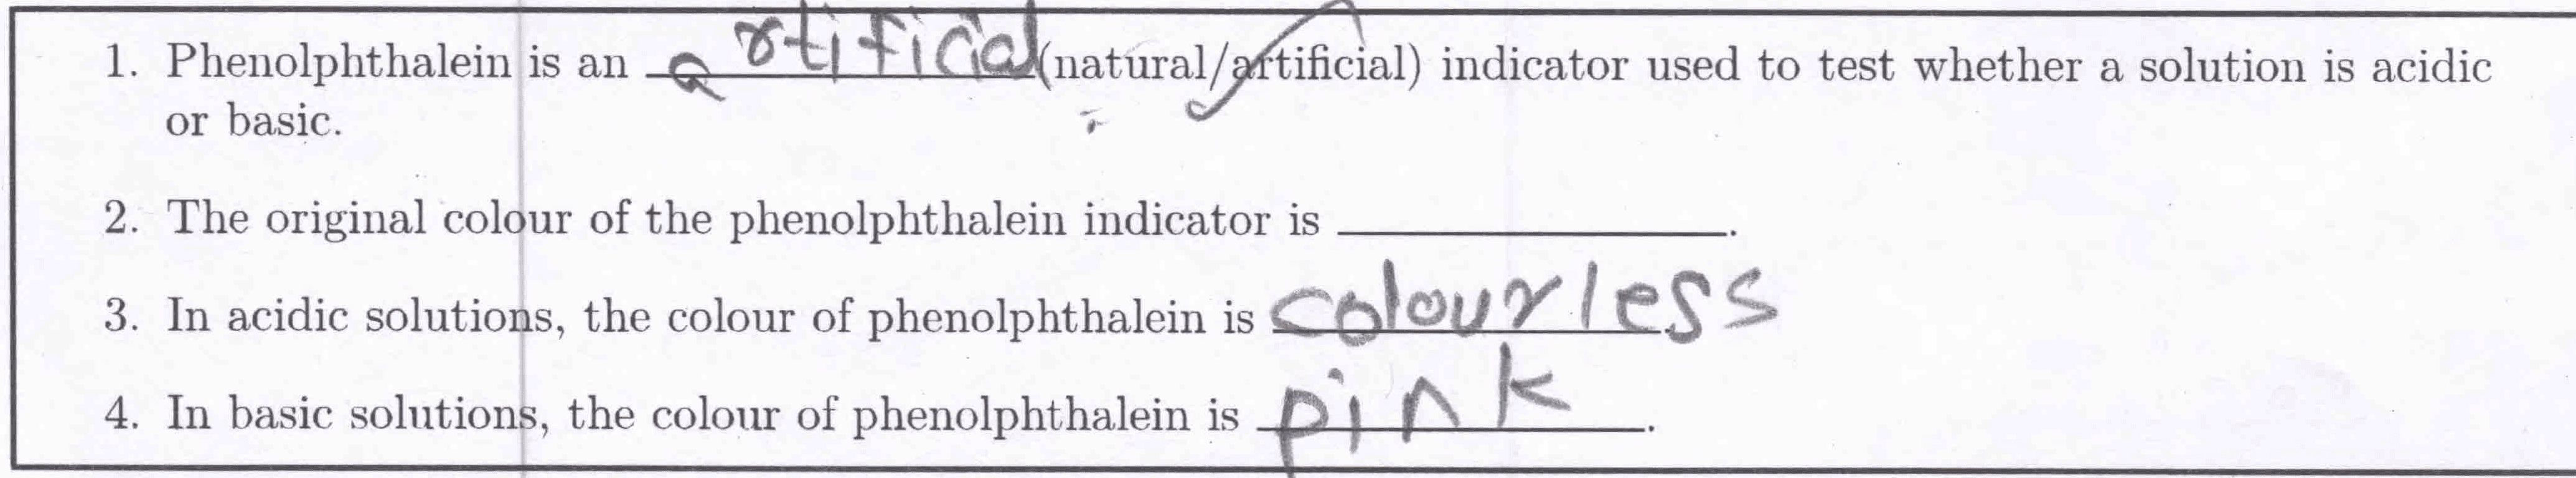 1. Phenolphthalein is an artificial (natural/artificial) indicator used to test whether a solution is acidic
or basic.
2. The original colour of the phenolphthalein indicator is ____________.
3. In acidic solutions, the colour of phenolphthalein is colourless.
4. In basic solutions, the colour of phenolphthalein is pink.